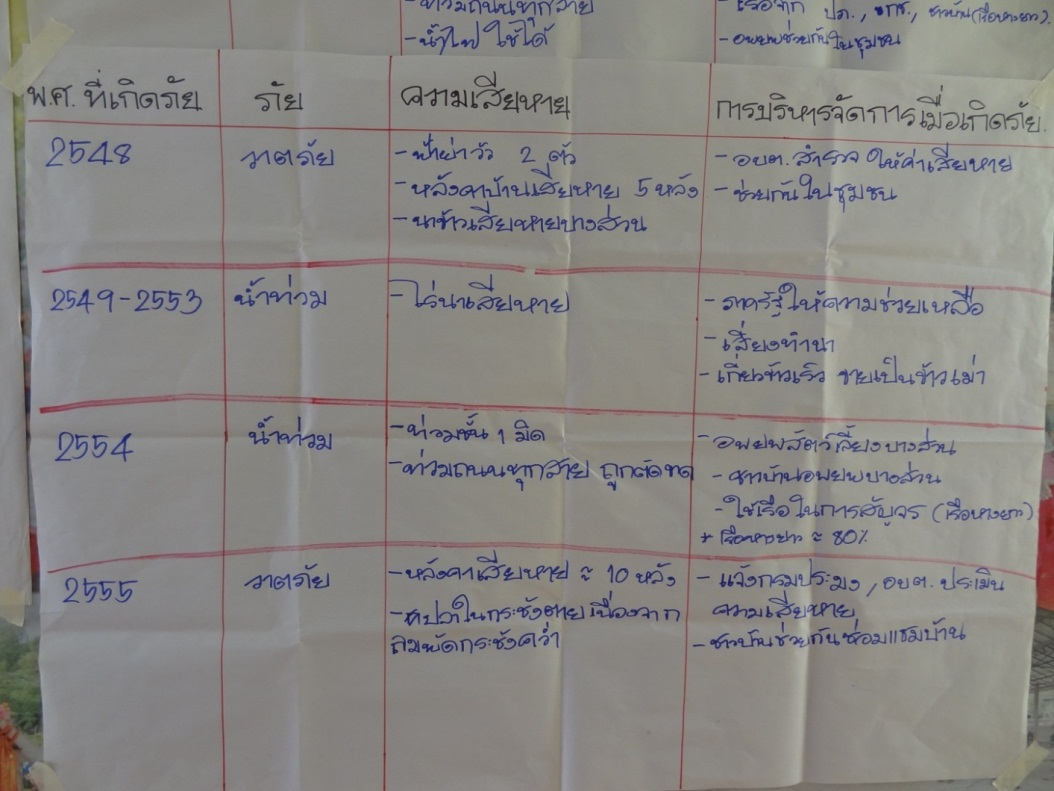 - ท่วมถนนทุกสาย
- น้ำไฟ ใช้ได้
- เรือจาก ปภ., อกช., ชาวบ้าน (เรือหางยาว).
- อพยพช่วยกันในชุมชน
พ.ศ. ที่เกิดภัย
ภัย
ความเสียหาย
การบริหารจัดการเมื่อเกิดภัย.
2548
วาตภัย
- ฟ้าผ่าวัว 2 ตัว
- หลังคาบ้านเสียหาย 5 หลัง
- นาข้าวเสียหายบางส่วน
- อบต. สำรวจ ให้ค่าเสียหาย
- ช่วยกันในชุมชน
2549-2553
น้ำท่วม
- ไร่นาเสียหาย
- ภาครัฐให้ความช่วยเหลือ
- เสี่ยงทำนา
- เกี่ยวข้าวเร็ว ขายเป็นข้าวเม่า
2554
น้ำท่วม
- ท่วมชั้น 1 มิด
- ท่วมถนนทุกสาย ถูกตัดขาด
- อพยพสัตว์เลี้ยงบางส่วน
- ชาวบ้านอพยพบางส่วน
- ใช้เรือในการสัญจร (เรือหางยาว)
* เรือหางยาว ≈ 80%
2555
วาตภัย
- หลังคาเสียหาย ≈ 10 หลัง
- ปลาในกระชังตาย เนื่องจาก
ลมพัดกระชังคว่ำ
- แจ้งกรมประมง, อบต. ประเมิน
ความเสียหาย
- ชาวบ้านช่วยกันซ่อมแซมบ้าน